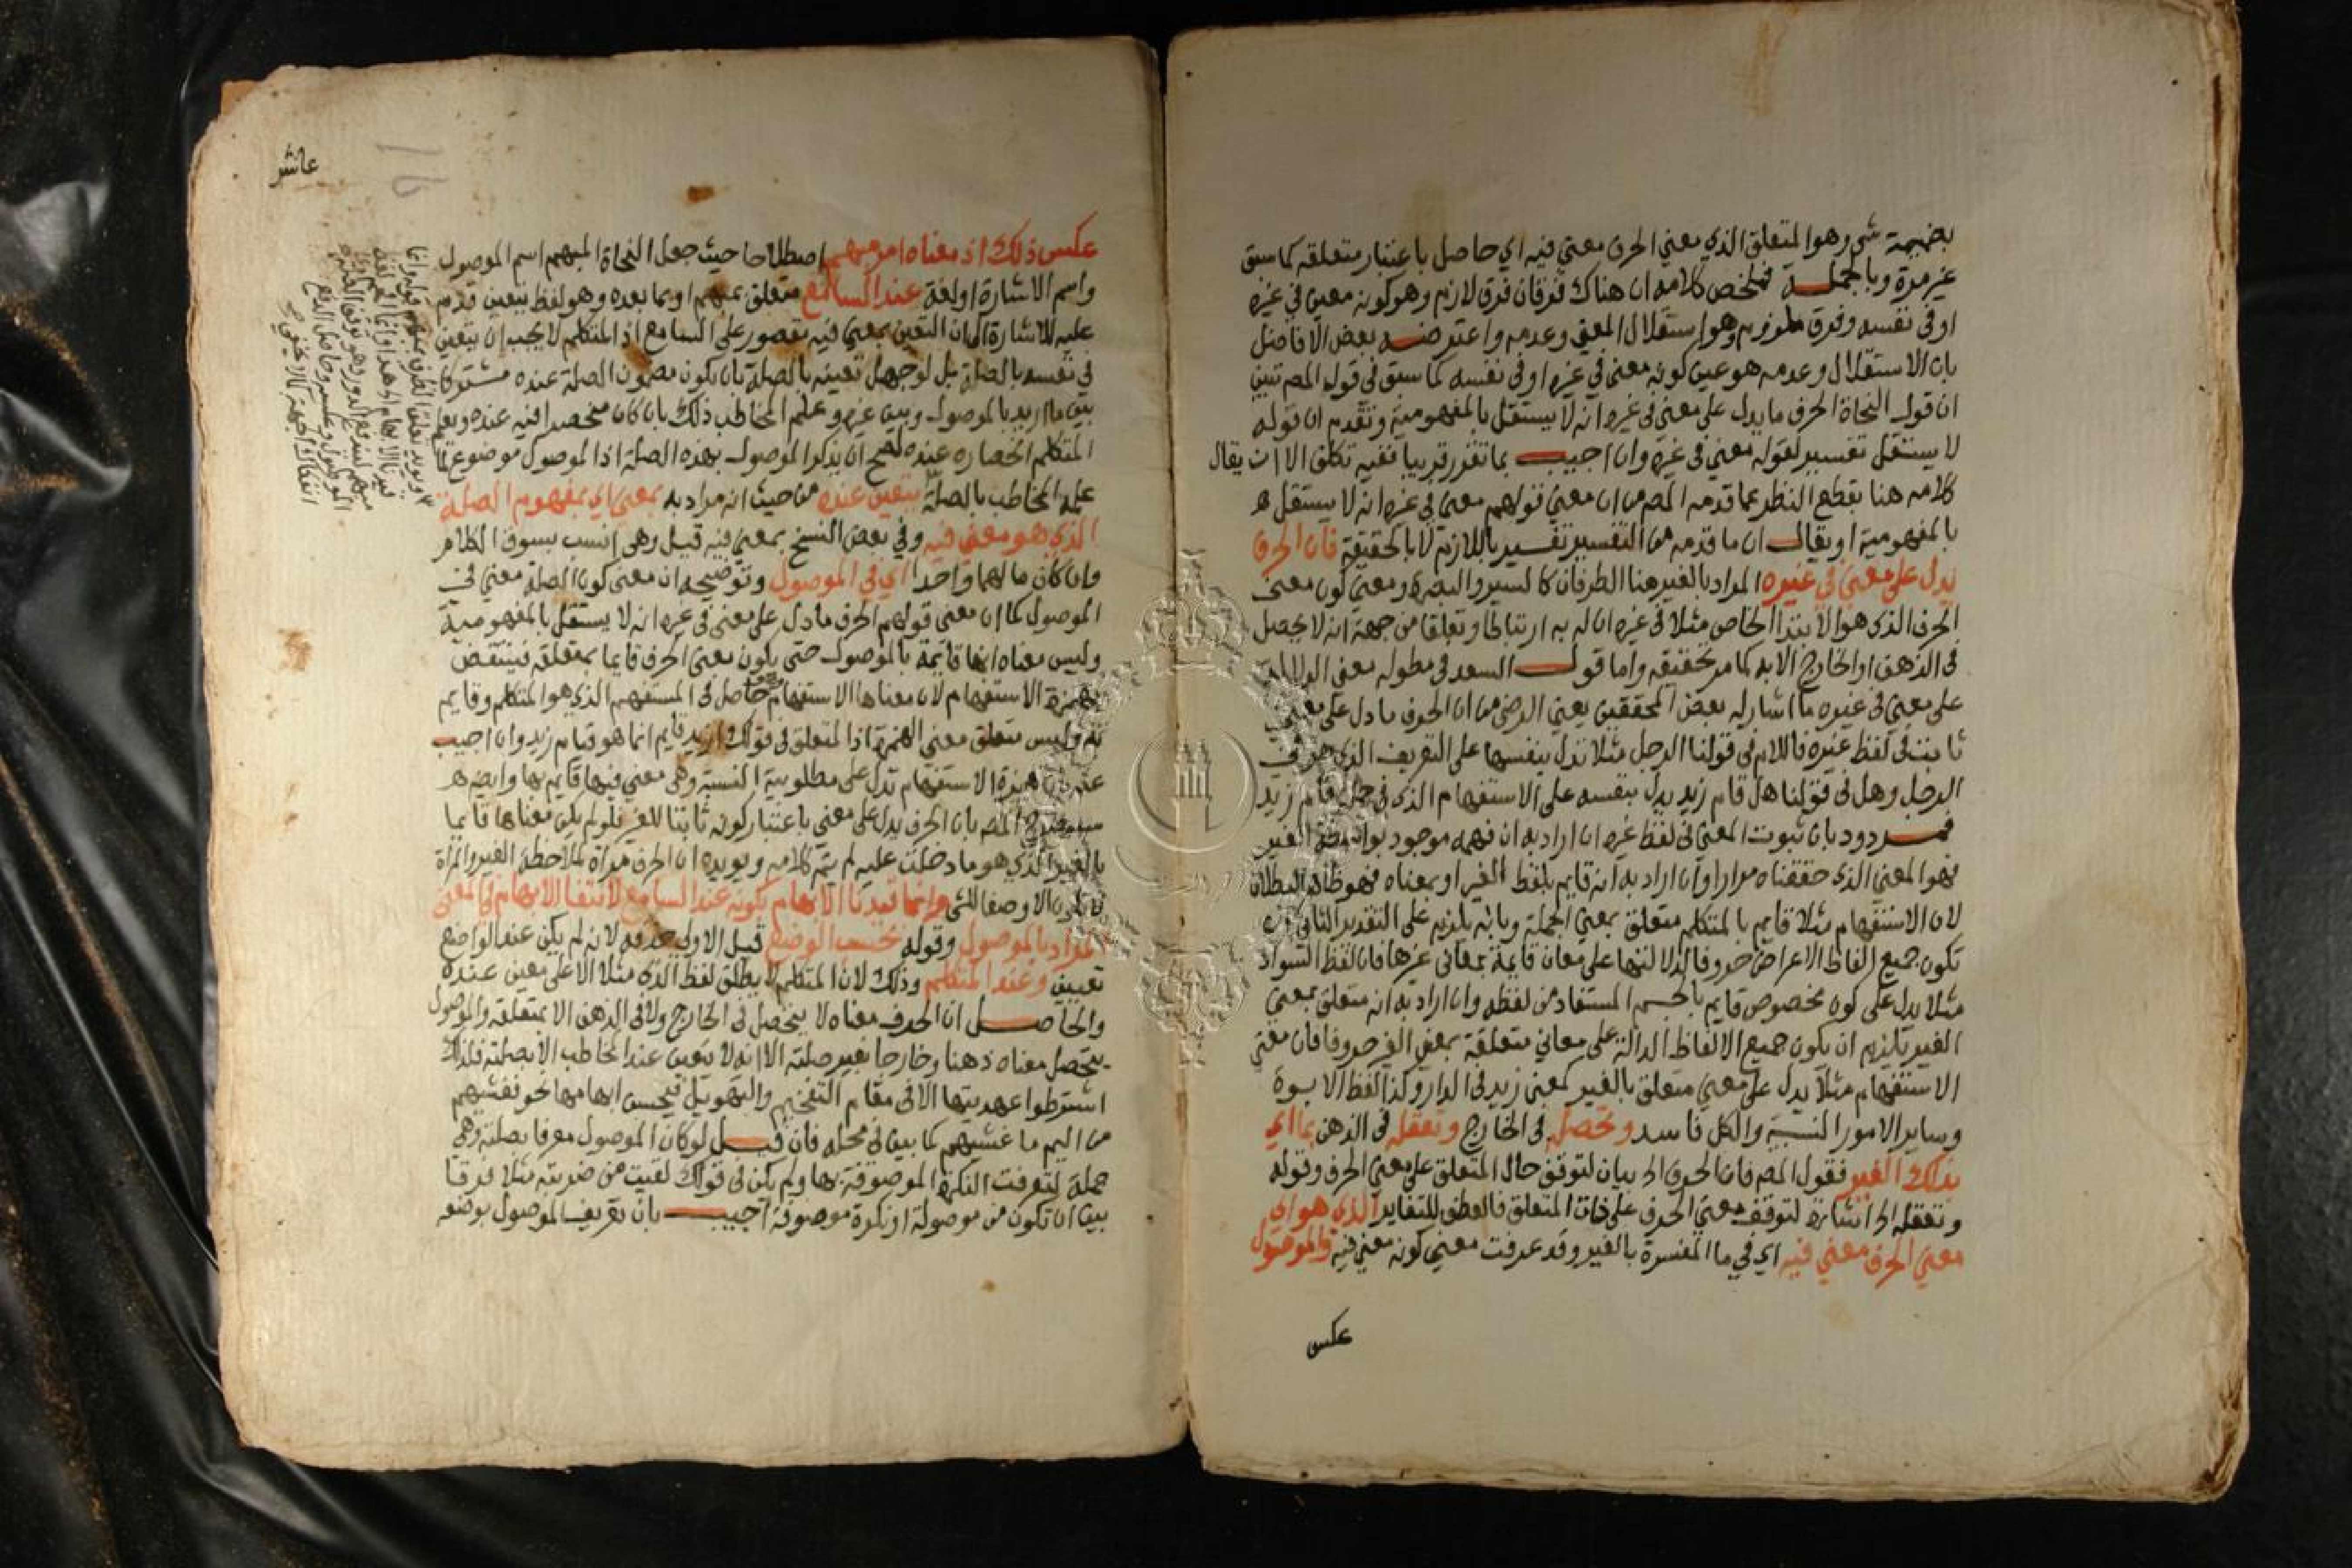 بضميمة شي وهو المتعلق الذي معني الحرف معني فيه اي حاصل باعتبار متعلقه كما سبق
غير مرة وبالجملة فملخص كلامه ان هناك فرقان فرق لازم وهو كونه معني في غيره
او في نفسه وفرق ملزوم وهو استقلال المعني وعدمه واعترضه بعض الافاضل
بان الاستقلال وعدمه هو عين كونه معني في غيره او في نفسه كما سبق في قول المصر تبين
ان قول النحاة الحرف ما يدل على معني في غيره انه لا يستقل بالمفهومية وتقدم ان قوله
لا يستقل تفسير لقوله معني في غيره وان اجيب بما تقرر قريبا ففيه تكلف الا ان يقال
كلامه هنا بقطع النظر عما قدمه المصر من ان معني قولهم معني في غيره انه لا يستقل
بالمفهومية او يقال ان ما قدمه من التفسير تفسير باللازم لا بالحقيقة فان الحرف
يدل على معني في غيره المراد بالغير هنا الطرفان كالسير والبصرة ومعني كون معني
الحرف الذي هو الابتدا الخاص مثلا في غيره ان له به ارتباطا وتعلقا من جهة انه لا يحصل
في الذهن او الخارج الا به كما مر تحقيقه واما قول السعد في مطوله معني الدلالة
على معني في غيره ما اشار له بعض المحققين يعني الرضي من ان الحرف ما دل على معني
ثابت في لفظ غيره فاللام في قولنا الرجل مثلا تدل بنفسها على التعريف الذي هو في
الرجل وهل في قولنا هل قام زيد يدل بنفسه على الاستفهام الذي في جملة قام زيد
فمردود بان ثبوت المعني في لفظ غيره ان اراد به ان فهمه موجود بواسطة الغير
فهو المعني الذي حققناه مرارا وان اراد به انه قايم بلفظ الغير او بمعناه فهو ظاهر البطلان
لان الاستفهام مثلا قايم بالمتكلم متعلق بمعني الجملة وبانه يلزم على التقدير الثاني ان
تكون جميع الفاظ الاعراض حروفا لدلالتها على معان قايمة بمعاني غيرها فان لفظ السواد
مثلا يدل على كون مخصوص قايم بالجسم المستفاد من لفظه وان اراد به انه متعلق بمعني
الغير يلزم ان يكون جميع الالفاظ الدالة على معاني متعلقة بمعني الغير حروفا فان معني
الاستفهام مثلا يدل على معني متعلق بالغير كمعني زيد في الدار وكذا لفظ الابوة
وساير الامور النسبية والكل فاسد وتحصله في الخارج وتعقله في الذهن بما اي
بذلك الغير فقول المصر فان الحرف الخ بيان لتوقف حال المتعلق على معني الحرف وقوله
وتعقله الخ اشارة لتوقف معني الحرف على ذات المتعلق فالعطف للتغاير الذي هو اي
معني الحرف معني فيه اي في ما المفسرة بالغير وقد عرفت معني كونه معني فيه والموصول
عكس
عاشر
16
عكس ذلك اذ معناه امر مبهم اصطلاحا حيث جعل النحاة المبهم اسم الموصول
واسم الاشارة او لغة عند السامع متعلق بمبهم او بما بعده وهو لفظ يتعين قدم
عليه للاشارة الي ان التعين بمعني فيه مقصور على السامع اذ المتكلم لا يجب ان يتعين
في نفسه بالصلة بل لو جهل تعينه بالصلة بان يكون مضمون الصلة عنده مشتركا
بين ما اريد بالموصول وبين غيره وعلم المخاطب ذلك بان كان منحصرا فيه عنده ويعلم
المتكلم انحصاره عنده لصح ان يذكر الموصول بهذه الصلة اذ الموصول موضوع لما
علمه المخاطب بالصلة يتعين عنده من حيث انه مراد به بمعني اي بمفهوم الصلة
الذي هو معني فيه وفي بعض النسخ بمعني فيه قيل وهي انسب بسوق الكلام
وان كان مالهما واحدا اي في الموصول وتوضيحه ان معني كون الصلة معني في
الموصول كما ان معني قولهم الحرف ما دل على معني في غيره انه لا يستقل بالمفهومية
وليس معناه انها قايمة بالموصول حتى يكون معني الحرف قايما بمتعلقه فينتقض
بهمزة الاستفهام لان معناها الاستفهام وهو حاصل في المستفهم الذي هو المتكلم وقايم
به وليس متعلق معني الهمزة اذ المتعلق في قولك ازيد قايم انما هو قيام زيد وان اجيب
عنه بان همزة الاستفهام تدل على مطلوبية النسبة وهي معني فيها قايم بها وايضه
المصر بان الحرف يدل على معني باعتبار كونه ثابتا للغير فلو لم يكن معناها قايما
بالغير الذي هو ما دخلت عليه لم يتم كلامه ويويده ان الحرف مراة لملاحظة الغير والمراة
لا تكون الا وصفا للشي وانما قيدنا الابهام بكونه عند السامع لانتفا الابهام في معني
المراد بالموصول وقوله بحسب الوضع قيل الاولي حذفه لانه لم يكن عند الواضع
تعيين وعند المتكلم وذلك لان المتكلم لا يطلق لفظ الذي مثلا الا على معين عنده
والحاصل ان الحرف معناه لا يتحصل في الخارج ولا في الذهن الا بمتعلقه والموصول
يتحصل معناه ذهنا وخارجا بغير صلته الا انه لا يتعين عند المخاطب الا بصلته فلذلك
اشترطوا عهديتها الا في مقام التفخيم والتهويل فيحسن ابهامها نحو فغشيهم
من اليم ما غشيهم كما بين في محله فان قيل لو كان الموصول معرفا بصلته وهي
جملة لتعرفت النكرة الموصوفة بها ولم يكن في قولك لقيت من ضربته مثلا فرقا
بين ان تكون من موصولة او نكرة موصوفة اجيب بان تعريف الموصول بوضعه